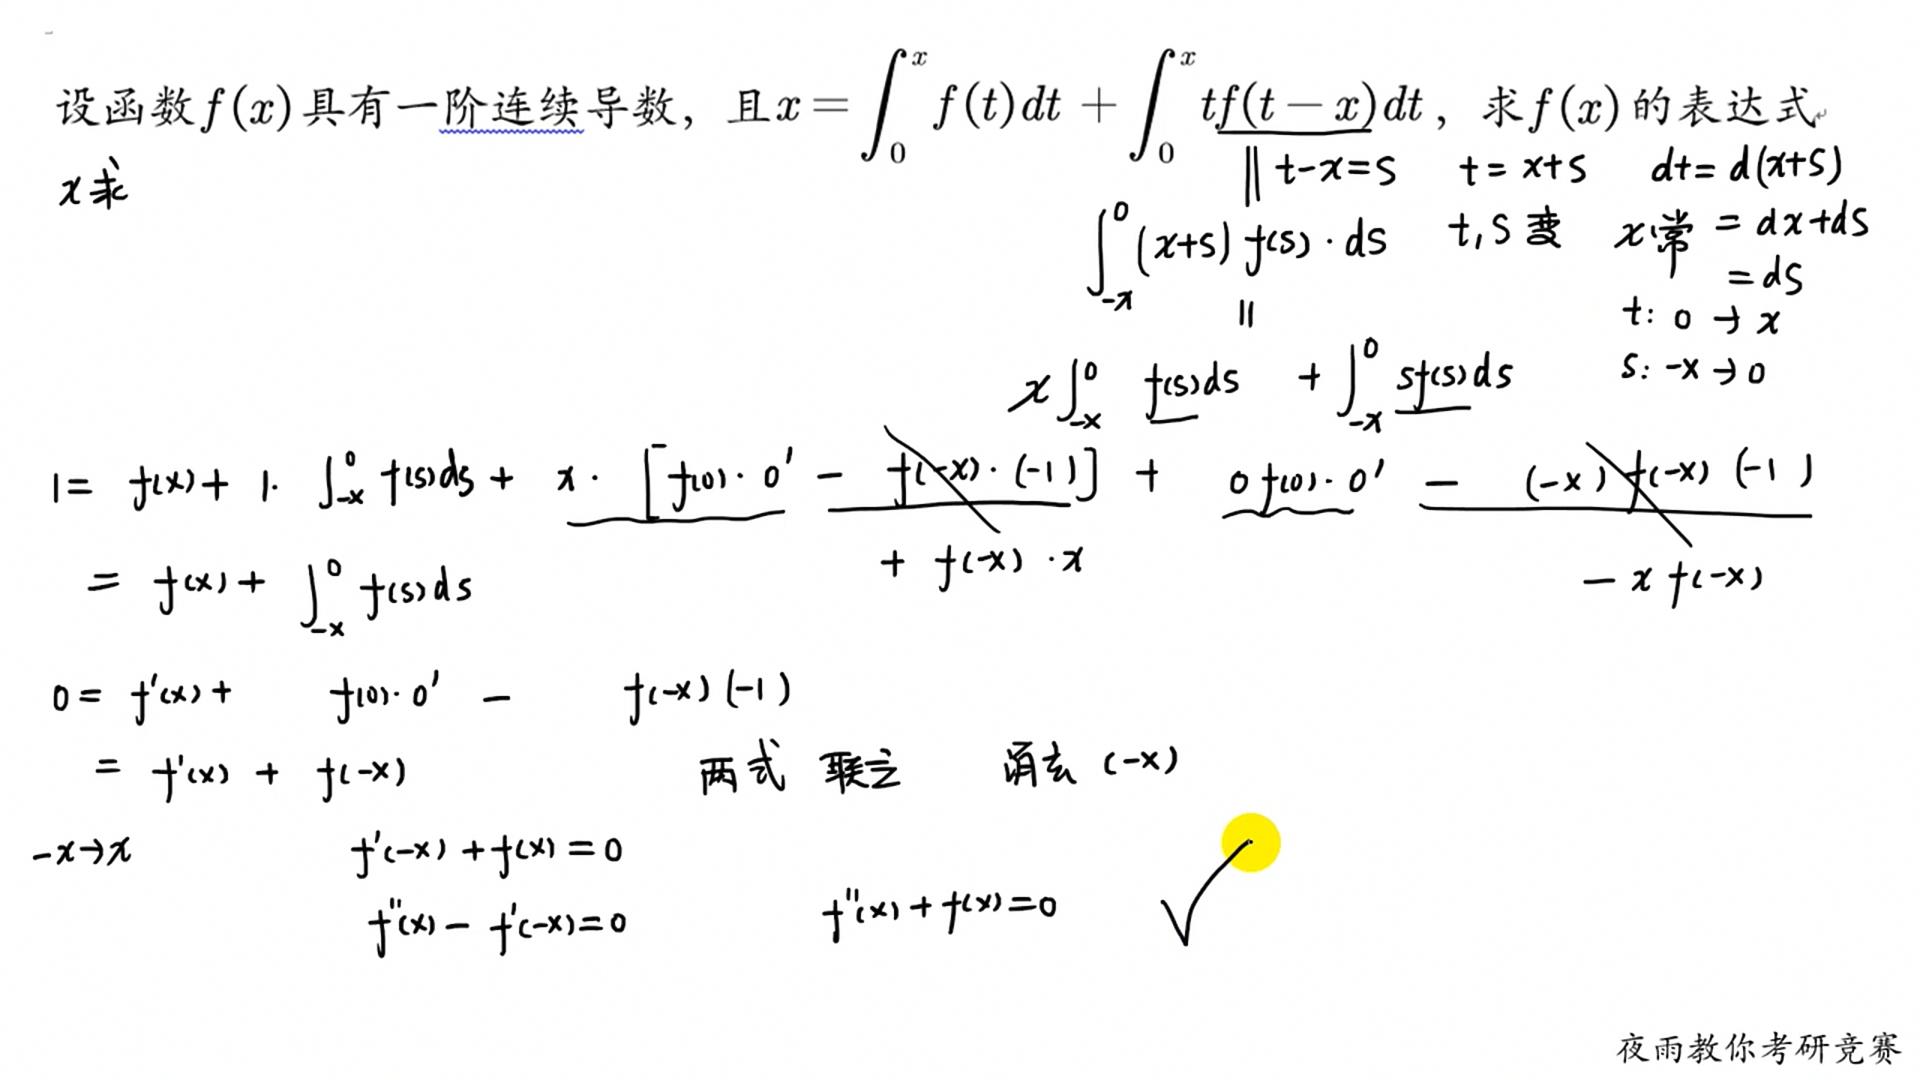 设函数f(x)具有一阶连续导数，且x=∫₀ˣ f(t)dt+∫₀ˣ tf(t−x)dt，求f(x)的表达式
x求
‖ t-x=s t=x+s dt=d(x+s)
∫₋ₓ⁰ (x+s)f(s)·ds t,s变 x常 =dx+ds
=ds
‖ t: 0→x
x∫₋ₓ⁰ f(s)ds + ∫₋ₓ⁰ sf(s)ds s: -x→0
1= f(x)+ 1· ∫₋ₓ⁰ f(s)ds + x·[f(0)·0′ − f(-x)·(-1)] + 0f(0)·0′ − (-x)f(-x)(-1)
+ f(-x)·x − xf(-x)
= f(x)+ ∫₋ₓ⁰ f(s)ds
0= f′(x)+ f(0)·0′ − f(-x)(-1)
= f′(x) + f(-x) 两式 联立 消去 (-x)
-x→x f′(-x)+f(x)=0
f″(x)− f′(-x)=0 f″(x)+f(x)=0 √
夜雨教你考研竞赛